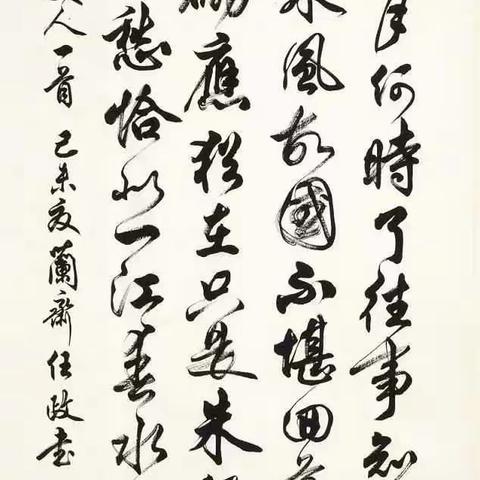 月何時了往事知
東風故國不堪回首
砌應猶在只是朱
愁恰似一江春水
人一首 己未夏蘭齋任政書